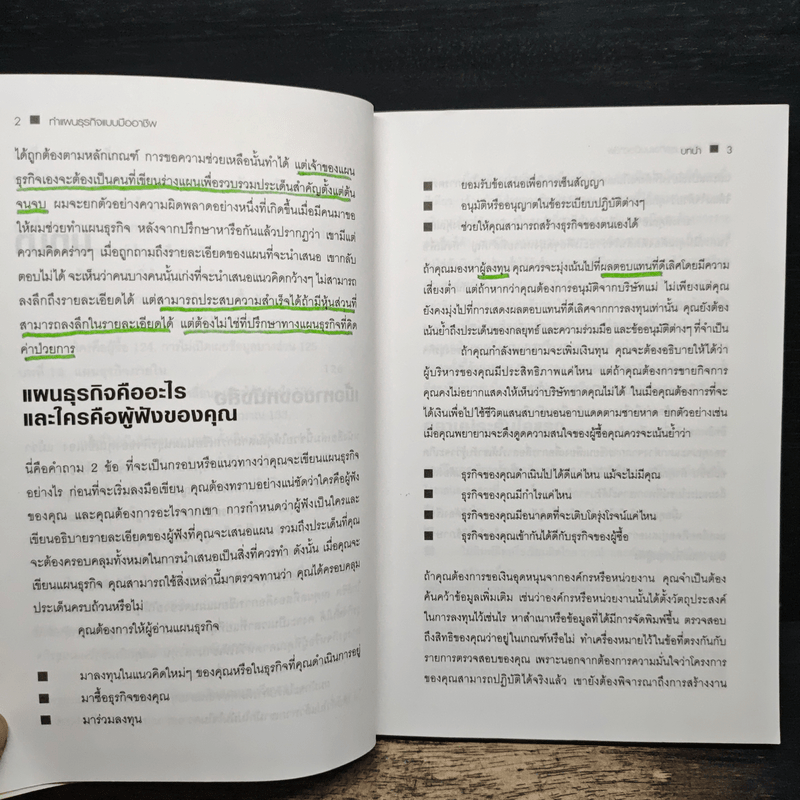 2 ■ ทำแผนธุรกิจแบบมืออาชีพ
ได้ถูกต้องตามหลักเกณฑ์ การขอความช่วยเหลือนั้นทำได้ แต่เจ้าของแผน
ธุรกิจเองจะต้องเป็นคนที่เขียนร่างแผนเพื่อรวบรวมประเด็นสำคัญตั้งแต่ต้น
จนจบ ผมจะยกตัวอย่างความผิดพลาดอย่างหนึ่งที่เกิดขึ้นเมื่อมีคนมาขอ
ให้ผมช่วยทำแผนธุรกิจ หลังจากปรึกษาหารือกันแล้วปรากฏว่า เขามีแต่
ความคิดคร่าวๆ เมื่อถูกถามถึงรายละเอียดของแผนที่จะนำเสนอ เขากลับ
ตอบไม่ได้ จะเห็นว่าคนบางคนนั้นเก่งที่จะนำเสนอแนวคิดกว้างๆ ไม่สามารถ
ลงลึกถึงรายละเอียดได้ แต่สามารถประสบความสำเร็จได้ถ้ามีหุ้นส่วนที่
สามารถลงลึกในรายละเอียดได้ แต่ต้องไม่ใช่ที่ปรึกษาทางแผนธุรกิจที่คิด
ค่าป่วยการ
แผนธุรกิจคืออะไร
และใครคือผู้ฟังของคุณ
นี่คือคำถาม 2 ข้อ ที่จะเป็นกรอบหรือแนวทางว่าคุณจะเขียนแผนธุรกิจ
อย่างไร ก่อนที่จะเริ่มลงมือเขียน คุณต้องทราบอย่างแน่ชัดว่าใครคือผู้ฟัง
ของคุณ และคุณต้องการอะไรจากเขา การกำหนดว่าผู้ฟังเป็นใครและ
เขียนอธิบายรายละเอียดของผู้ฟังที่คุณจะเสนอแผน รวมถึงประเด็นที่คุณ
จะต้องครอบคลุมทั้งหมดในการนำเสนอเป็นสิ่งที่ควรทำ ดังนั้น เมื่อคุณจะ
เขียนแผนธุรกิจ คุณสามารถใช้สิ่งเหล่านี้มาตรวจทานว่า คุณได้ครอบคลุม
ประเด็นครบถ้วนหรือไม่
คุณต้องการให้ผู้อ่านแผนธุรกิจ
■ มาลงทุนในแนวคิดใหม่ๆ ของคุณหรือในธุรกิจที่คุณดำเนินการอยู่
■ มาซื้อธุรกิจของคุณ
■ มาร่วมลงทุน
บทนำ ■ 3
■ ยอมรับข้อเสนอเพื่อการเซ็นสัญญา
■ อนุมัติหรืออนุญาตในข้อระเบียบปฏิบัติต่างๆ
■ ช่วยให้คุณสามารถสร้างธุรกิจของตนเองได้
ถ้าคุณมองหาผู้ลงทุน คุณควรจะมุ่งเน้นไปที่ผลตอบแทนที่ดีเลิศโดยมีความ
เสี่ยงต่ำ แต่ถ้าหากว่าคุณต้องการอนุมัติจากบริษัทแม่ ไม่เพียงแต่คุณ
ยังคงมุ่งไปที่การแสดงผลตอบแทนที่ดีเลิศจากการลงทุนเท่านั้น คุณยังต้อง
เน้นย้ำถึงประเด็นของกลยุทธ์ และความร่วมมือ และข้ออนุมัติต่างๆ ที่จำเป็น
ถ้าคุณกำลังพยายามจะเพิ่มเงินทุน คุณจะต้องอธิบายให้ได้ว่า
ผู้บริหารของคุณมีประสิทธิภาพแค่ไหน แต่ถ้าคุณต้องการขายกิจการ
คุณคงไม่อยากแสดงให้เห็นว่าบริษัทขาดคุณไม่ได้ ในเมื่อคุณต้องการที่จะ
ได้เงินเพื่อไปใช้ชีวิตแสนสบายนอนอาบแดดตามชายหาด ยกตัวอย่างเช่น
เมื่อคุณพยายามจะดึงดูดความสนใจของผู้ซื้อคุณควรจะเน้นย้ำว่า
■ ธุรกิจของคุณดำเนินไปได้ดีแค่ไหน แม้จะไม่มีคุณ
■ ธุรกิจของคุณมีกำไรแค่ไหน
■ ธุรกิจของคุณมีอนาคตที่จะเติบโตรุ่งโรจน์แค่ไหน
■ ธุรกิจของคุณเข้ากันได้ดีกับธุรกิจของผู้ซื้อ
ถ้าคุณต้องการขอเงินอุดหนุนจากองค์กรหรือหน่วยงาน คุณจำเป็นต้อง
ค้นคว้าข้อมูลเพิ่มเติม เช่นว่าองค์กรหรือหน่วยงานนั้นได้ตั้งวัตถุประสงค์
ในการลงทุนไว้เช่นไร หาสำเนาหรือข้อมูลที่ได้มีการจัดพิมพ์ขึ้น ตรวจสอบ
ถึงสิทธิของคุณว่าอยู่ในเกณฑ์หรือไม่ ทำเครื่องหมายไว้ในข้อที่ตรงกันกับ
รายการตรวจสอบของคุณ เพราะนอกจากต้องการความมั่นใจว่าโครงการ
ของคุณสามารถปฏิบัติได้จริงแล้ว เขายังต้องพิจารณาถึงการสร้างงาน